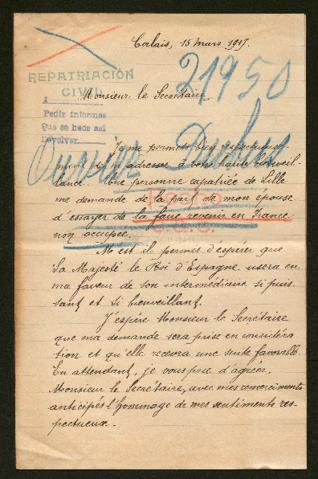 Calais, 15 mars 1917.
REPATRIACIÓN
CIVIL
21950
Monsieur le Secrétaire,
Pedir informes
Que se hace así
Devolver
Je me permets bien
adresser à votre haute bienveil-
lance. Une personne rapatriée de Lille
me demande de la part de mon épouse
d'essayer de la faire revenir en France
non occupée.
M'est il permis d'espérer que
Sa Majesté le Roi d'Espagne usera en
ma faveur de son intermédiaire si puis-
sant et si bienveillant.
J'espère Monsieur le Secrétaire
que ma demande sera prise en considéra
tion et qu'elle recevra une suite favorable.
En attendant, je vous prie d'agréer,
Monsieur le Secrétaire, avec mes remerciments
anticipés l'hommage de mes sentiments res-
pectueux.